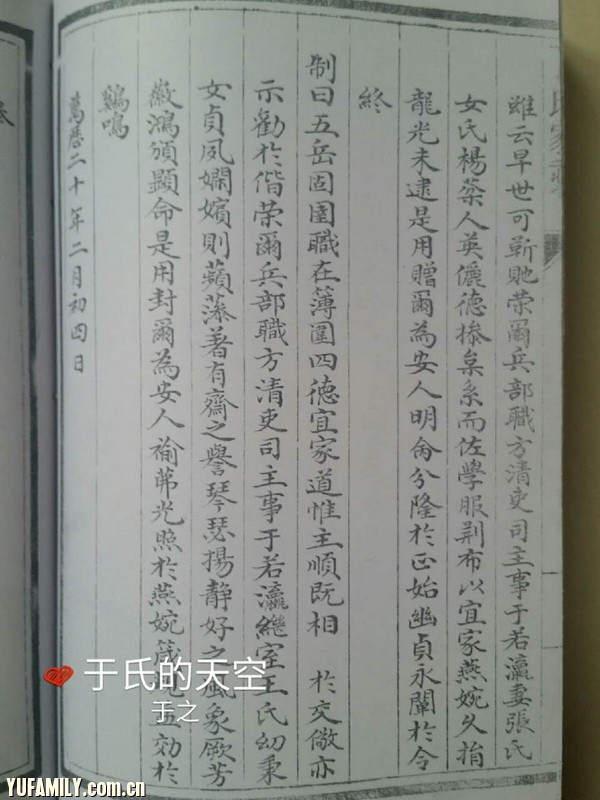 雖云早世可靳貤荣爾兵部職方清吏司主事于若瀛妻張氏
女氏楊葇人英儷德摻枲系而佐學服荆布以宜家燕婉久捐
龍光未逮是用贈爾為安人明兪兮隆於正始幽貞永闡於令
終
制曰五岳固圉職在簿圍四德宜家道惟主順既相 於交儆亦
示勸於偕荣爾兵部職方清吏司主事于若瀛繼室王氏幼秉
女貞夙嫻嬪則蘋藻著有齋之譽琴瑟揚靜好之風象厥芳
徽鴻頒顯命是用封爾為安人褕茀光照於燕婉 效於
鷄鳴
萬歷二十年二月初四日
于氏的天空
于之
YUFAMILY.com.cn